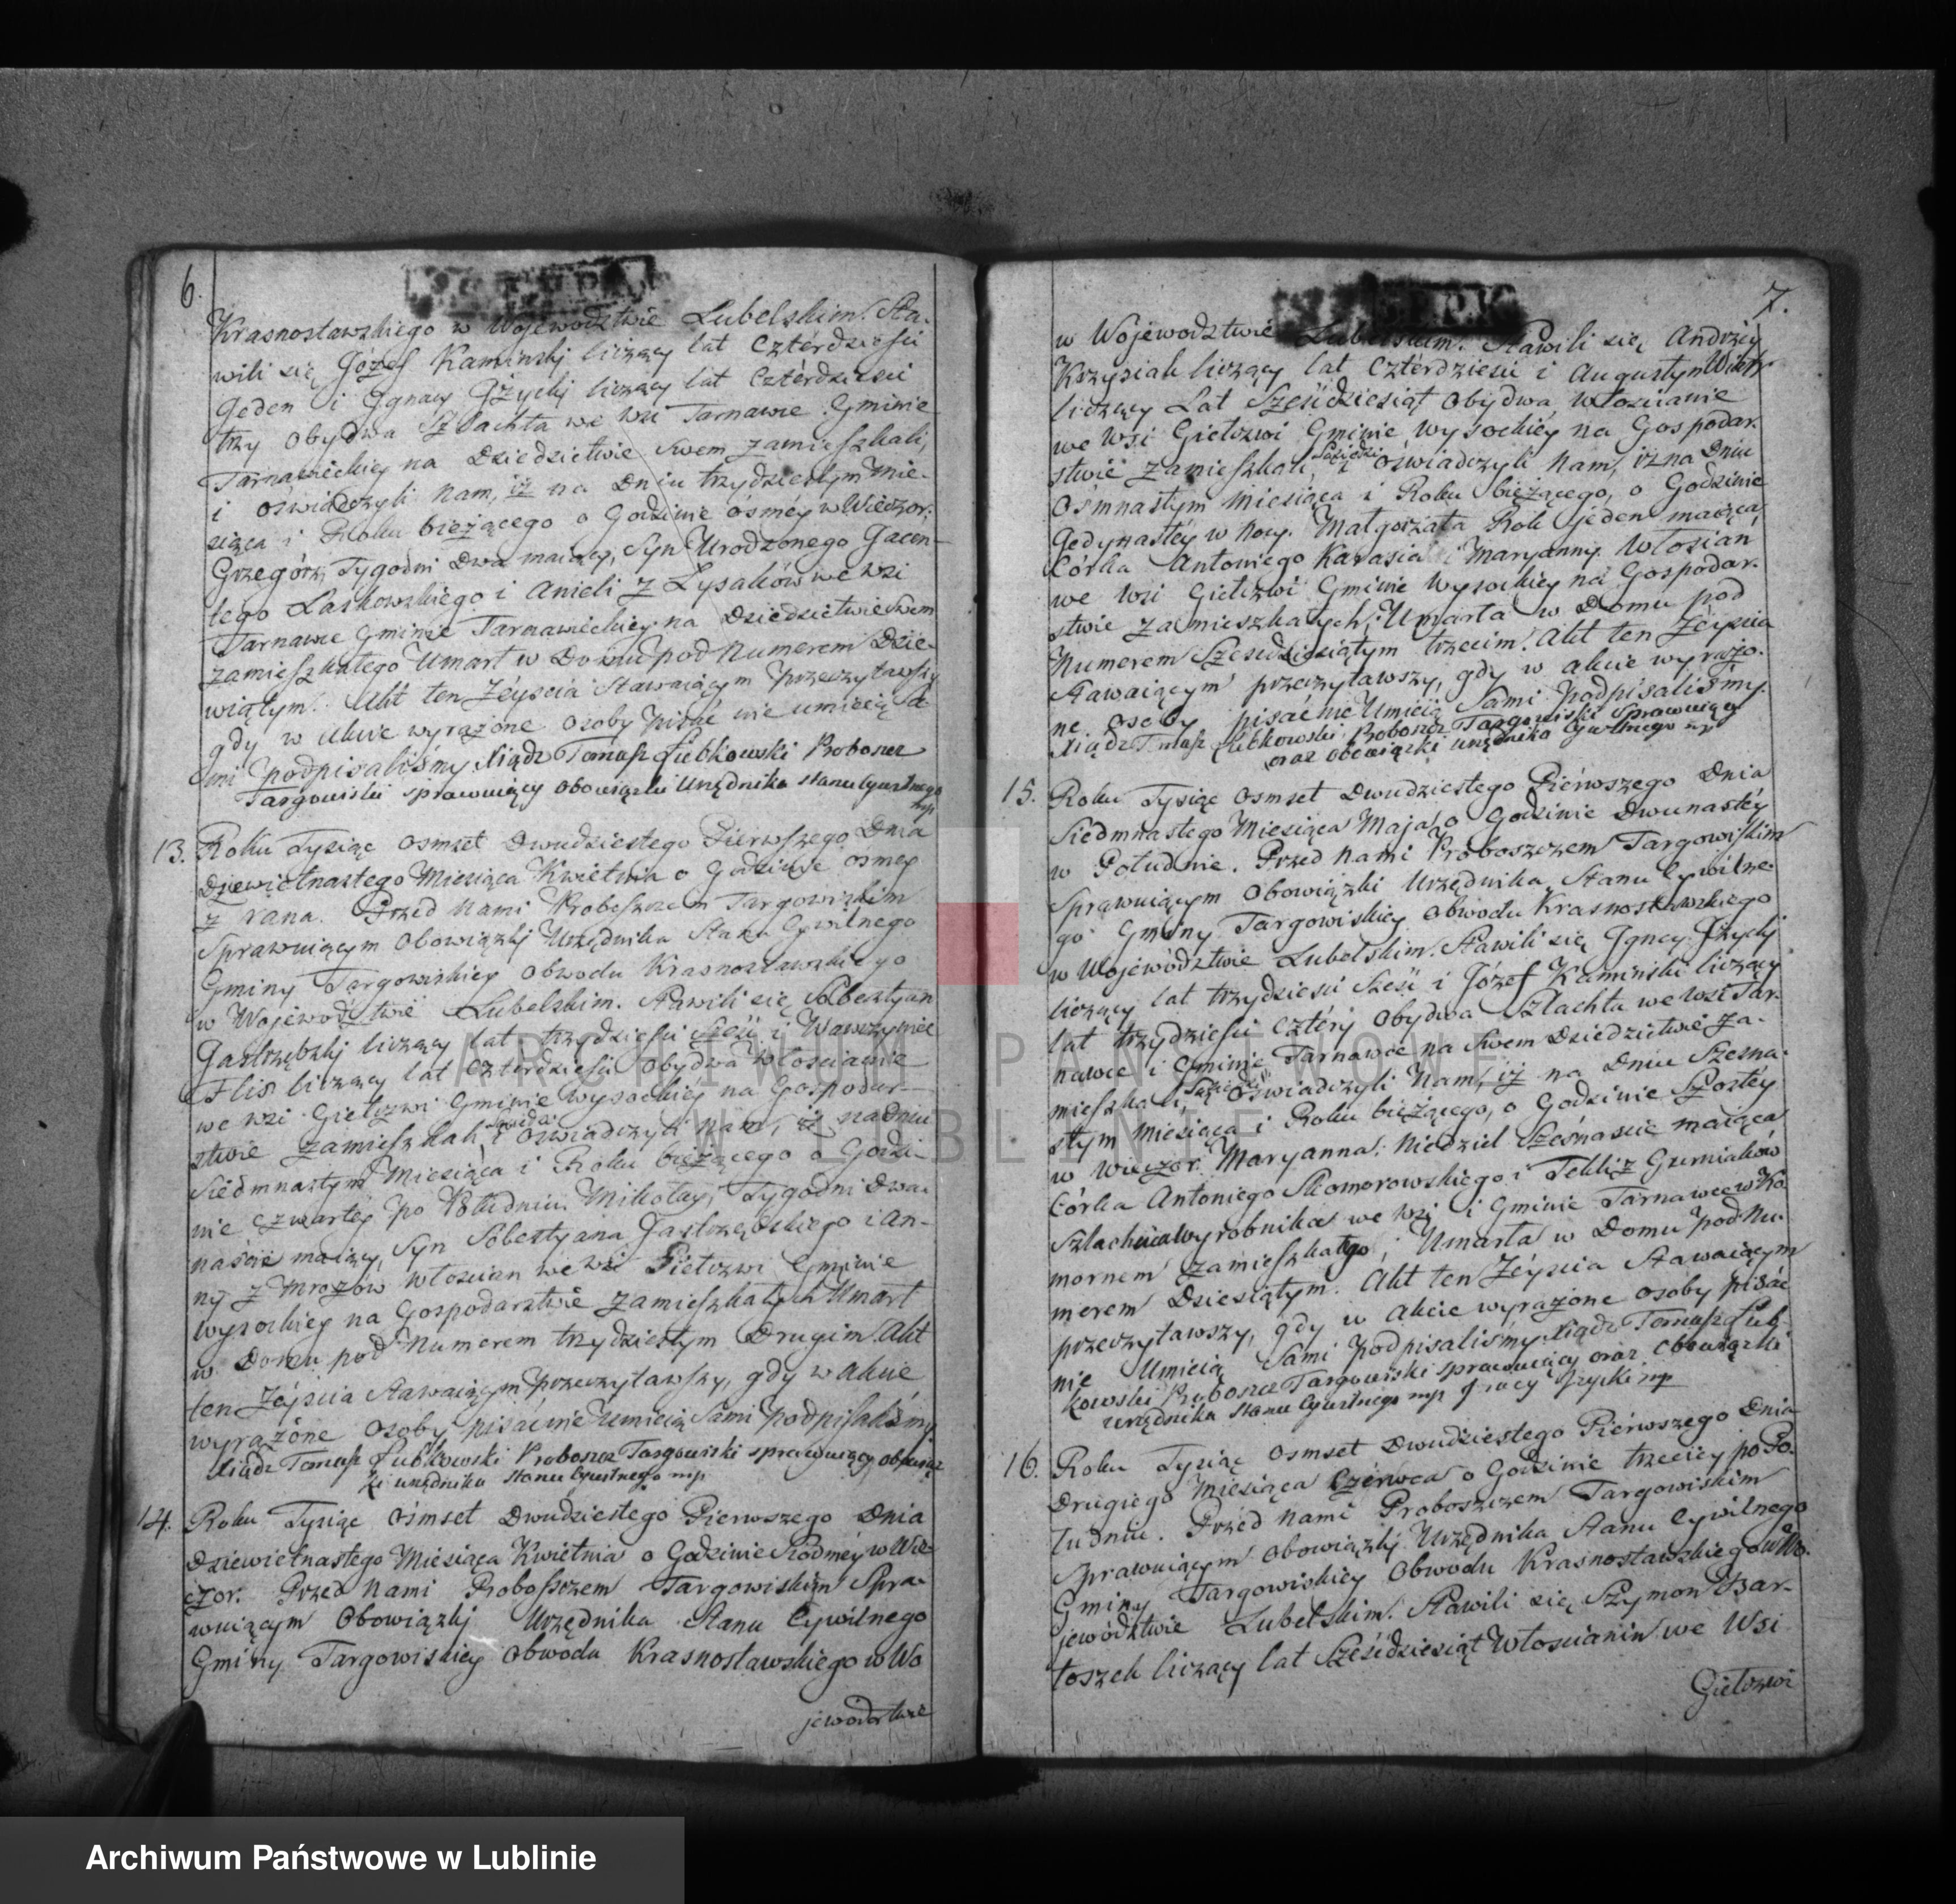 6.
Krasnostawskiego w Wojewodztwie Lubelskim. Sta-
wili się Jozef Kaminskj liczący lat Czterdziesci
Jeden i Jgnacy Jżyckj liczący lat Czterdziesci
trzy obydwa Szlachta we wsi Tarnawie Gminie
Tarnawieckiey na Dziedzictwie Swem zamieszkali,
i oświadczyli nam, iż na Dniu trzydziestym Mie-
siąca i Roku bieżącego o Godzinie ósméy w Wieczor.
Grzegórz, Tygodni Dwa maiący, Syn Urodzonego Jacen-
tego Laskowskiego i Anieli z Lysaków we wsi
Tarnawie Gminie Tarnawieckiey na Dziedzictwie Swem
zamieszkałego Umarł w Domu pod Numerem Dzie-
wiątym. Akt ten Zéyscia Stawaiącym przeczytawszy
gdy w akcie wyrażone osoby pisać nie umieią Sa-
mi podpisaliśmy. Xiądz Tomasz Lubkowski Proboszcz
Targowiski sprawuiący obowiązki Urzędnika stanu Cywilnego
mp
13. Roku Tysiąc osmset Dwudziestego Pierwszego Dnia
Dziewietnastego Miesiąca Kwietnia o Godzinie osmey
z rana. Przed Nami Proboszczem Targowiskim
Sprawuiącym obowiązkj Urzędnika Stanu Cywilnego
Gminy Targowiskiey obwodu Krasnostawskiego
w Wojewodztwie Lubelskim. Stawili się Sobestyan
Jastrzębskj liczący lat trzydziesci Sześć i Wawrzyniec
Flis liczący lat Czterdziesci obydwa Włoscianie
we wsi Giełczwi Gminie wysockiey na Gospodar-
Sąsiedzi
stwie zamieszkali i oświadczyli nam, iż na dniu
Siedmnastym Miesiąca i Roku bieżącego o Godzi-
nie czwartey po Południu. Mikołay, Tygodni Dwa-
naście maiący, Syn Sobestyana Jastrzębskiego i An-
ny z Mrozów Włoscian we wsi Giełczwi Gminie
wysockiey na Gospodarstwie zamieszkałych Umarł
w Domu pod Numerem trzydziestym Drugim. Akt
ten Zéyscia Stawaiącym przeczytawszy, gdy w akcie
wyrażone osoby pisać nie umieią Sami podpisaliśmy.
Xiądz Tomasz Lubkowski Proboszcz Targowiski sprawuiący obowiąz
ki urzędnika stanu Cywilnego mp.
14. Roku Tysiąc ośmset Dwudziestego Pierwszego Dnia
Dziewietnastego Miesiąca Kwietnia o Godzinie Siodméy w Wie-
czor. Przed Nami Proboszczem Targowiskim Spra-
wuiącym obowiązkj Urzędnika Stanu Cywilnego
Gminy Targowiskiey obwodu Krasnostawskiego w Wo
jewodztwie
7.
w Wojewodztwie Lubelskim. Stawili się Andrzey
Krzysiak liczący lat Czterdziesci i Augustyn
liczący Lat Sześćdziesiąt obydwa Włoscianie
we wsi Giełczwi Gminie wysockiéy na Gospodar-
Sąsiedzi
stwie zamieszkali, i oświadczyli nam, iż na Dniu
Osmnastym miesiąca i Roku bieżącego, o Godzinie
Jedynastéy w nocy. Małgorzata Rok jeden maiąca
Córka Antoniego Karasia i Maryanny. Włosian
we wsi Giełczwi Gminie wysockiey na Gospodar-
stwie zamieszkałych, Umarła w Domu pod
Numerem Szescdziesiątym trzecim. Akt ten Zéyscia
Stawaiącym przeczytawszy, gdy w akcie wyrażo-
ne osoby pisać nie Umieią Sami podpisaliśmy.
Xiądz Tomasz Lubkowski Proboszcz Targowiski Sprawuiący
oraz obowiązki urzędnika Cywilnego mp
15. Roku Tysiąc osmset Dwudziestego Pierwszego Dnia
Siedmnastego Miesiąca Maja o Godzinie Dwunastéy
w Południe. Przed Nami Proboszczem Targowiskim
Sprawuiącym obowiązki Urzędnika Stanu Cywilne-
go Gminy Targowiskiey obwodu Krasnostawskiego
w Wojewodztwie Lubelskim. Stawili się Jgnacy Jżyckj
liczący lat trzydziesci Sześć i Józef Kaminski liczący
lat trzydziesci Cztéry obydwa Szlachta we wsi Tar-
nawce i Gminie Tarnawce na Swem Dziedzictwie za-
Sąsiedzi
mieszkali, oświadczyli Nam, iż na Dniu Szesna-
stym miesiąca i Roku bieżącego, o Godzinie Szóstéy
w wieczor. Maryanna, Niedziel Szesnascie maiąca
Córka Antoniego Skomorowskiego i Tekli z Gurniaków
Szlachcica wyrobnika we wsi i Gminie Tarnawce w Ko-
mornem zamieszkałego, Umarła w Domu pod Nu-
merem Dziesiątym. Akt ten Zéyscia Stawaiącym
przeczytawszy, gdy w akcie wyrażone osoby pisać
nie Umieią Sami podpisaliśmy. Xiądz Tomasz Lub-
kowski Proboszcz Targowiski sprawuiący oraz obowiązki
urzędnika stanu Cywilnego mp Jgnacy Jzycki mp
16. Roku Tysiąc osmset Dwudziestego Pierwszego Dnia
Drugiego Miesiąca Czerwca o Godzinie trzeciey po Po-
ludniu. Przed Nami Proboszczem Targowiskim
Sprawuiącym obowiązkj Urzędnika Stanu Cywilnego
Gminy Targowiskiey obwodu Krasnostawskiego w Wo-
jewództwie Lubelskim. Stawili się Szymon Bar-
toszek liczący lat Sześćdziesiąt Włoscianin we Wsi
Giełczwi
ARCHIWUM PAŃSTWOWE
W LUBLINIE
Archiwum Państwowe w Lublinie